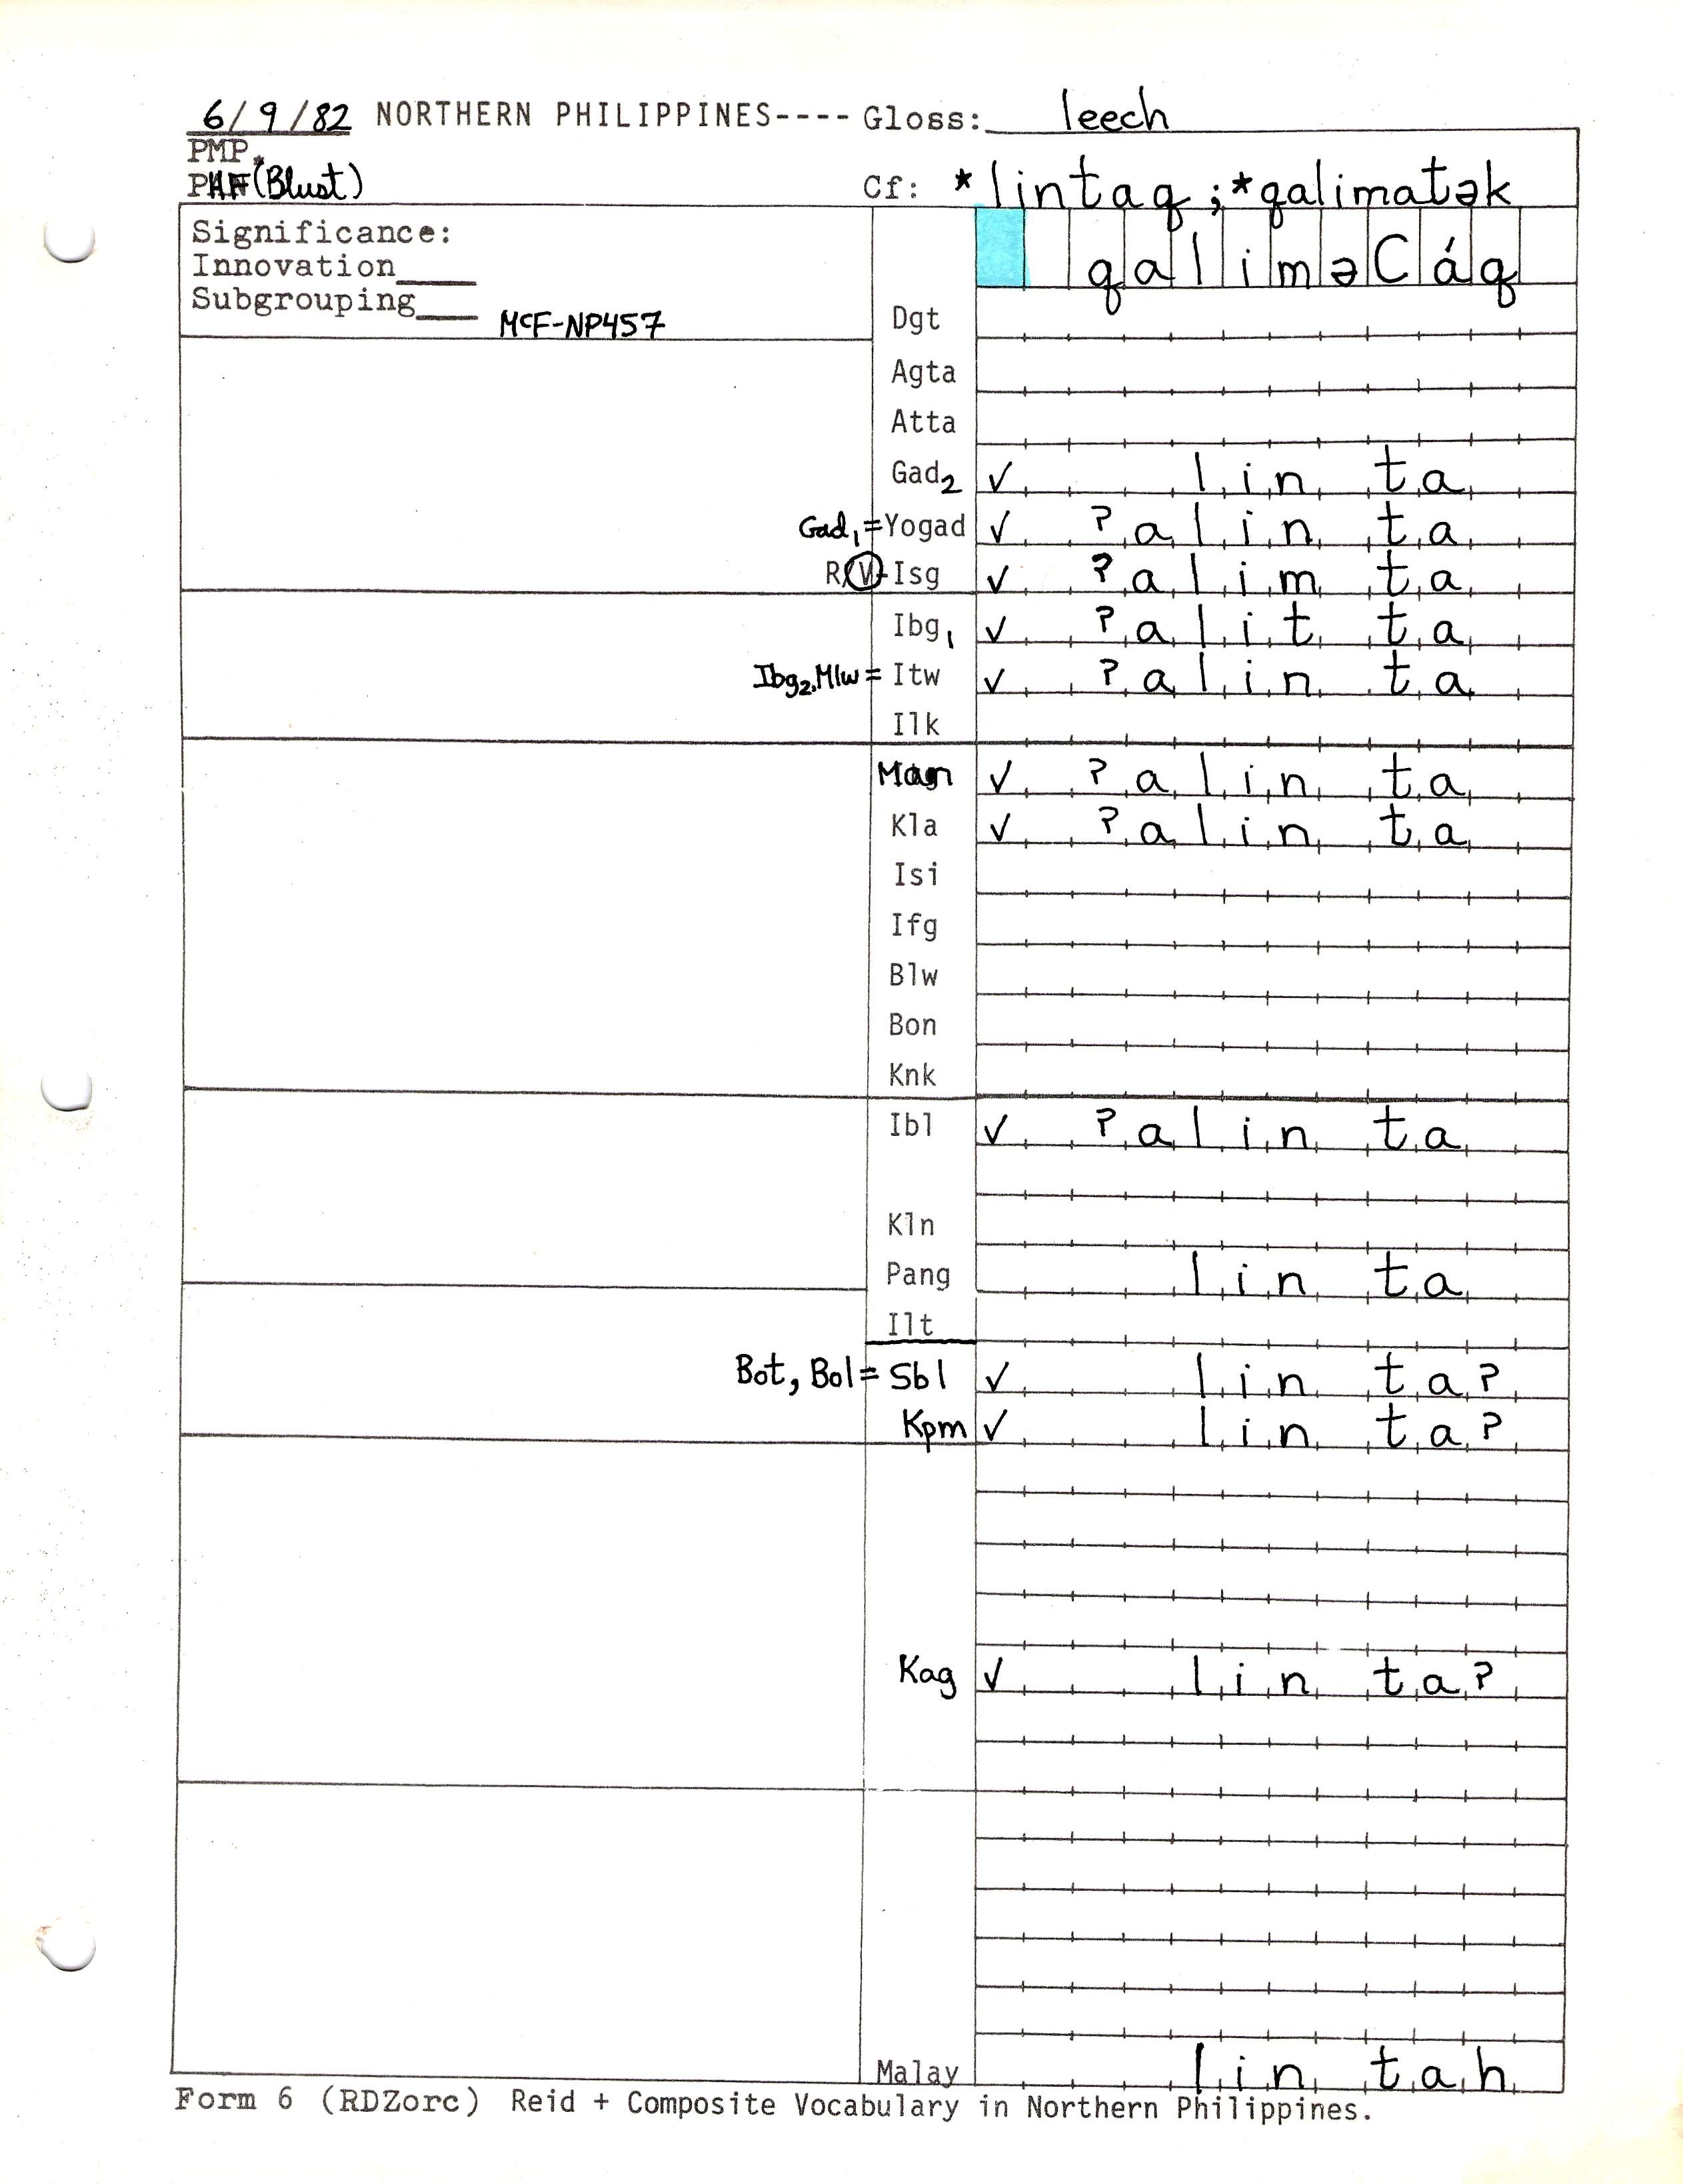 6/9/82 NORTHERN PHILIPPINES---- Gloss: leech
PMP
(Blust) Cf: *lintaq ; *qalimatək
Significance:
Innovation____ qaliməCáq
Subgrouping____ McF-NP457
Dgt
Agta
Atta
Gad2 ✓ linta
Gad1 = Yogad ✓ ʔalinta
R/V-Isg ✓ ʔalimta
Ibg1 ✓ ʔalitta
Ibg2, Mlw = Itw ✓ ʔalinta
Ilk
Man ✓ ʔalinta
Kla ✓ ʔalinta
Isi
Ifg
Blw
Bon
Knk
Ibl ✓ ʔalinta
Kln
Pang linta
Ilt
Bot, Bol = Sbl ✓ lintaʔ
Kpm ✓ lintaʔ
Kag ✓ lintaʔ
Malay lintah
Form 6 (RDZorc) Reid + Composite Vocabulary in Northern Philippines.